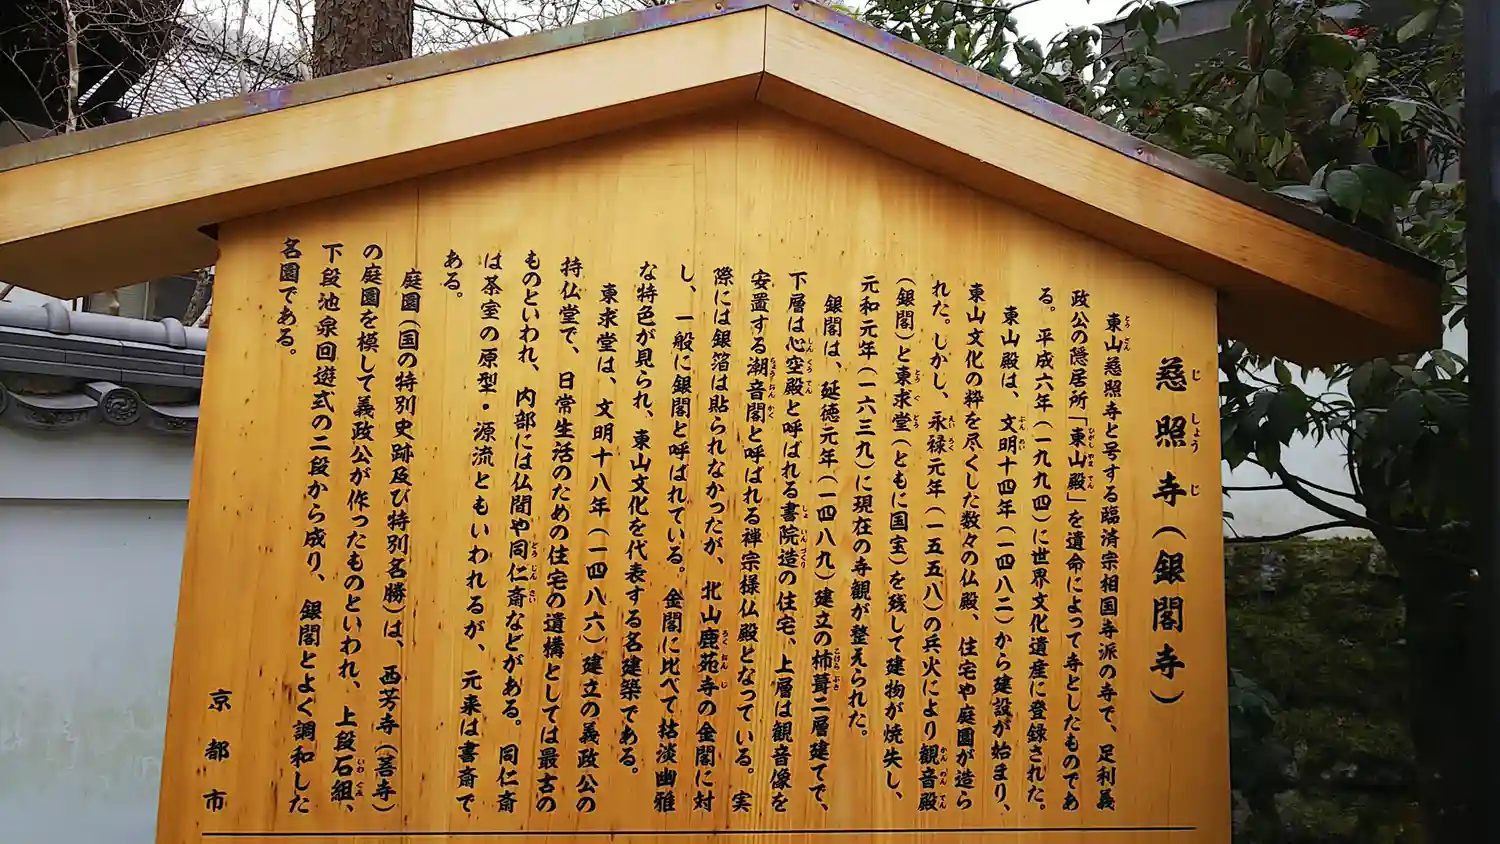 慈照寺（銀閣寺）
じしょうじ
東山慈照寺と号する臨済宗相国寺派の寺で、足利義
とうざん
政公の隠居所「東山殿」を遺命によって寺としたものであ
ひがしやまでん
る。平成六年（一九九四）に世界文化遺産に登録された。
東山殿は、文明十四年（一四八二）から建設が始まり、
ぶんめい
東山文化の粋を尽くした数々の仏殿、住宅や庭園が造ら
れた。しかし、永禄元年（一五五八）の兵火により観音殿
えいろく
かんのんでん
（銀閣）と東求堂（ともに国宝）を残して建物が焼失し、
とうぐどう
元和元年（一六三九）に現在の寺観が整えられた。
銀閣は、延徳元年（一四八九）建立の柿葺二層建てで、
こけらぶき
下層は心空殿と呼ばれる書院造の住宅、上層は観音像を
しんくうでん
しょいんづくり
安置する潮音閣と呼ばれる禅宗様仏殿となっている。実
ちょうおんかく
際には銀箔は貼られなかったが、北山鹿苑寺の金閣に対
ろくおんじ
し、一般に銀閣と呼ばれている。金閣に比べて枯淡幽雅
な特色が見られ、東山文化を代表する名建築である。
東求堂は、文明十八年（一四八六）建立の義政公の
持仏堂で、日常生活のための住宅の遺構としては最古の
ものといわれ、内部には仏間や同仁斎などがある。同仁斎
どうじんさい
は茶室の原型・源流ともいわれるが、元来は書斎で
ある。
庭園（国の特別史跡及び特別名勝）は、西芳寺（苔寺）
の庭園を模して義政公が作ったものといわれ、上段石組、
いわぐみ
下段池泉回遊式の二段から成り、銀閣とよく調和した
名園である。
京都市